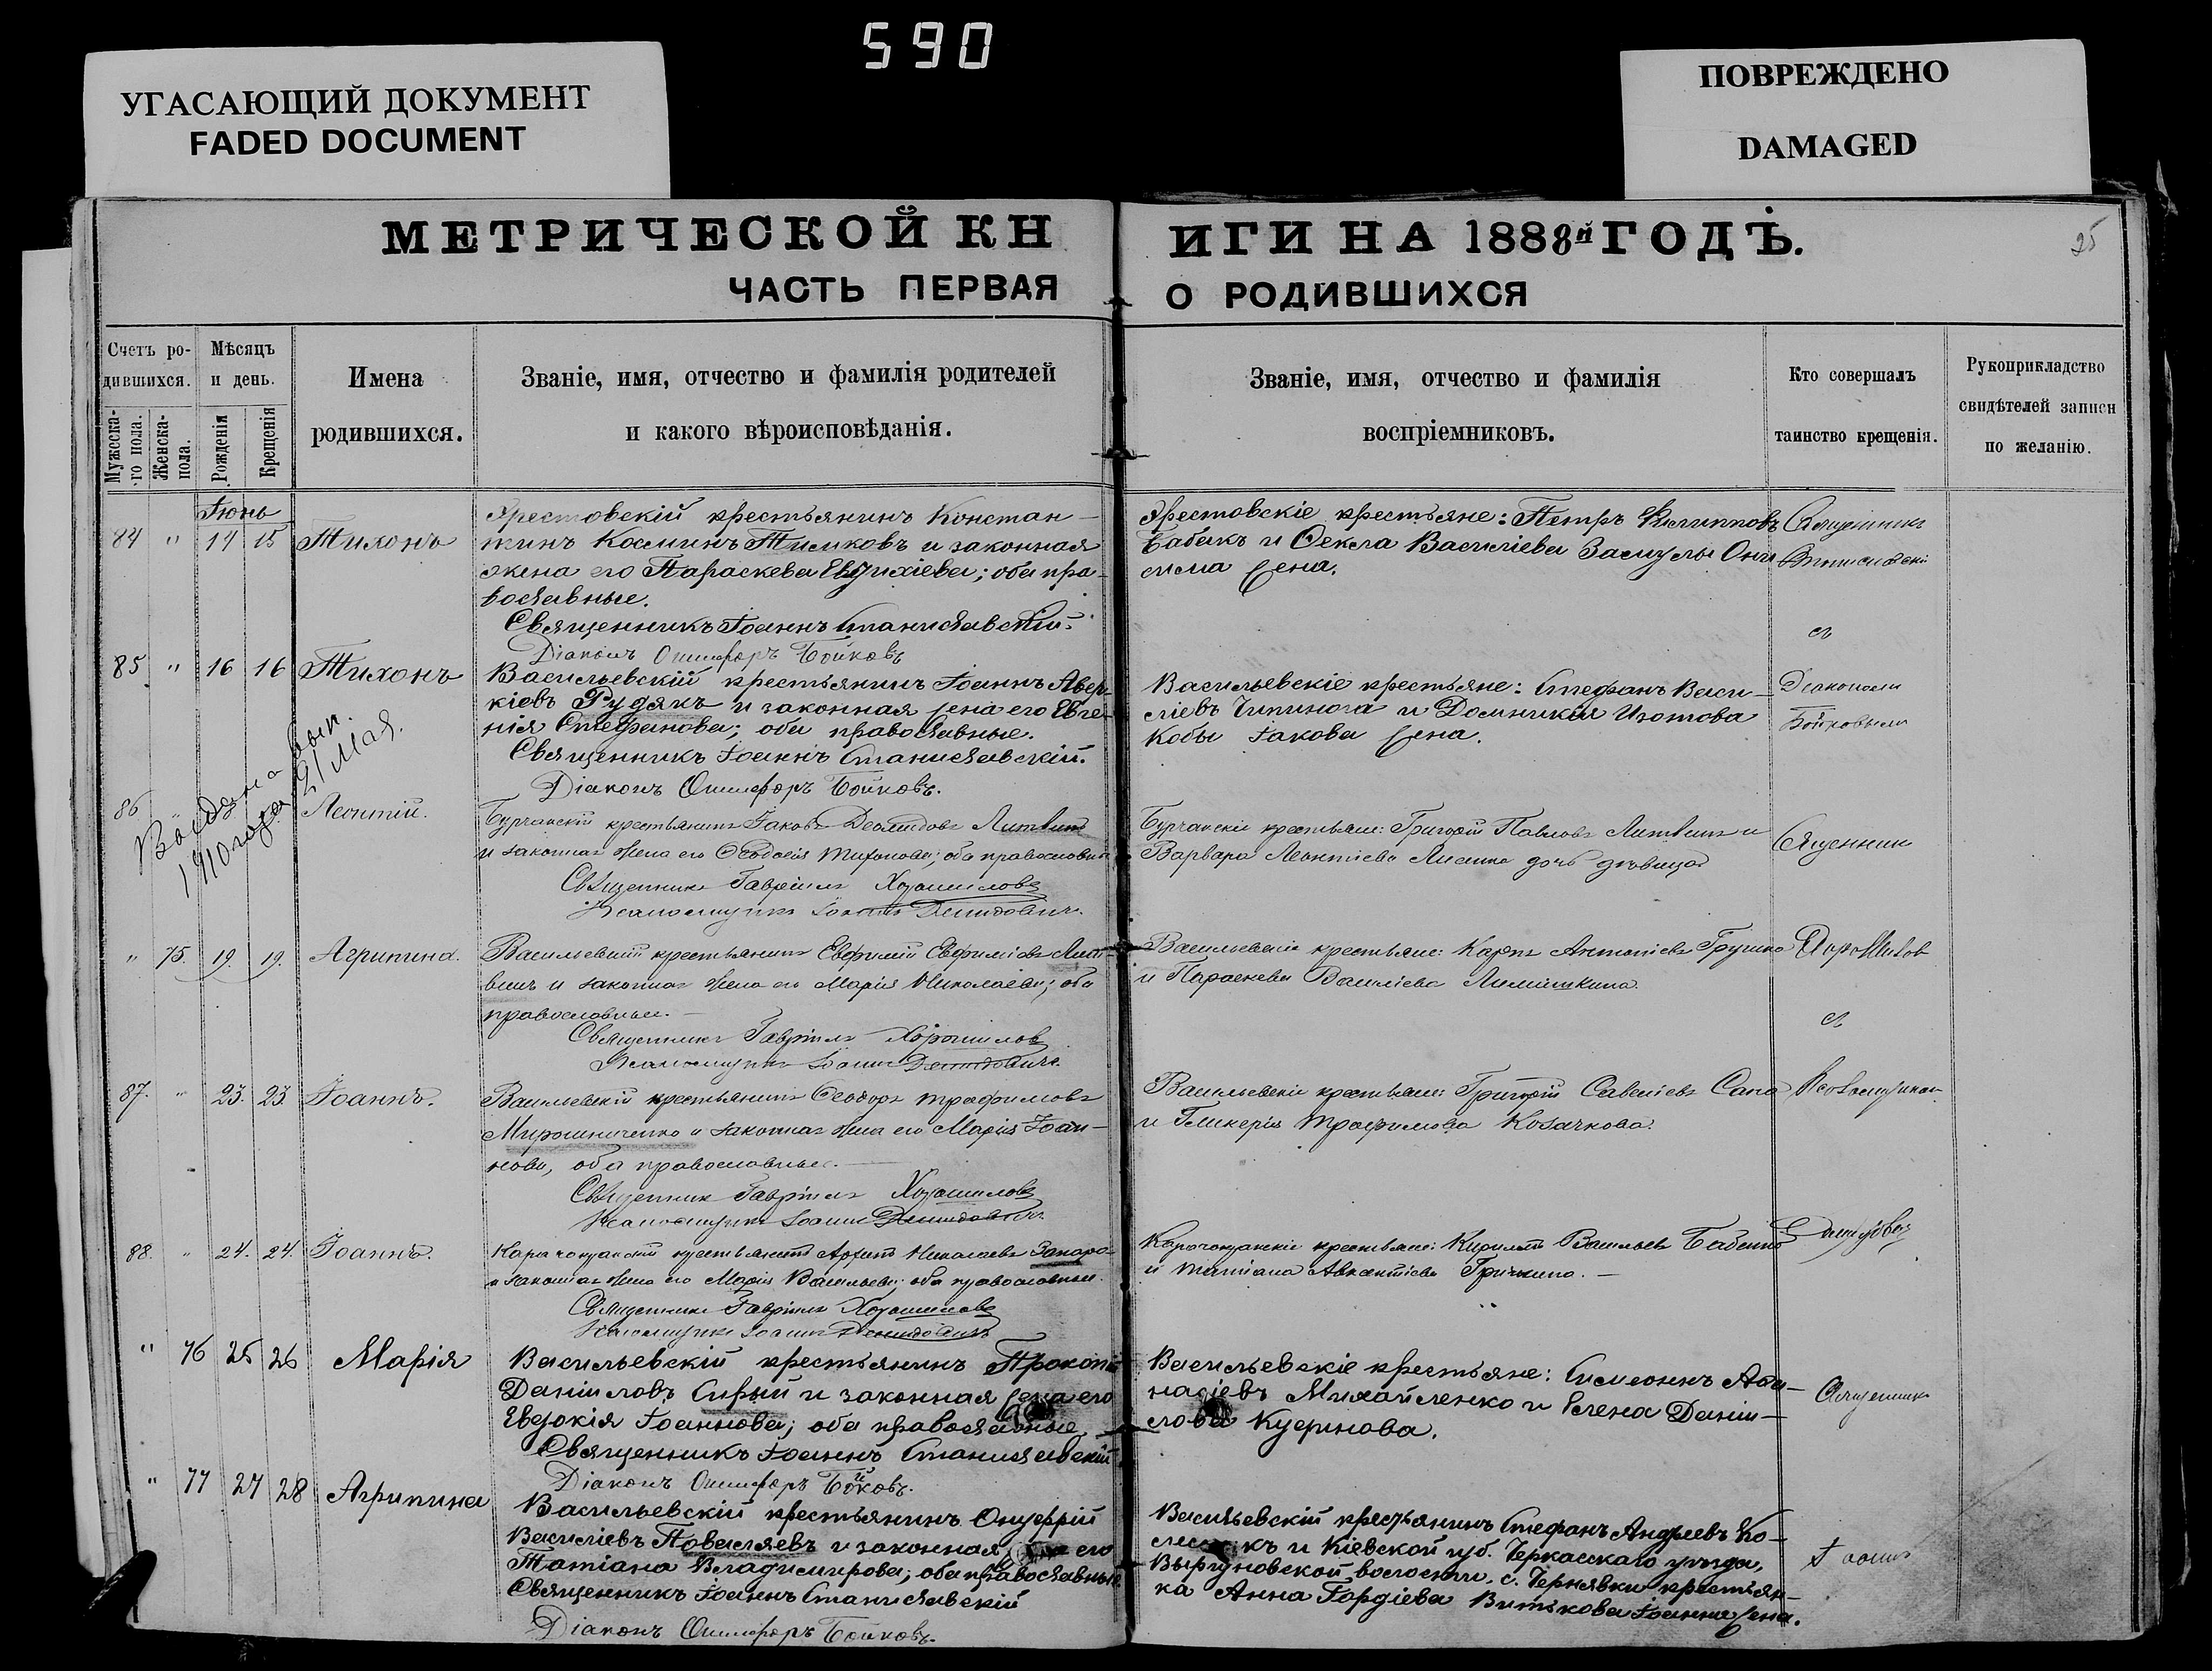 590
УГАСАЮЩИЙ ДОКУМЕНТ
FADED DOCUMENT
ПОВРЕЖДЕНО
DAMAGED
МЕТРИЧЕСКОЙ КНИГИ НА 1888й ГОДЪ.
25
ЧАСТЬ ПЕРВАЯ О РОДИВШИХСЯ
Счетъ ро-
дившихся.
Мужеска-
го пола.
Женска-
пола.
Мѣсяцъ
и день.
Рожденія
Крещенія
Имена
родившихся.
Званіе, имя, отчество и фамилія родителей
и какого вѣроисповѣданія.
Званіе, имя, отчество и фамилія
воспріемниковъ.
Кто совершалъ
таинство крещенія.
Рукоприкладство
свидѣтелей записи
по желанію.
Іюнь
84 " 14 15 Тихонъ
крестьянинъ Констан-
тинъ Косминъ и законная
жена его Параскева Евтихіева; оба пра-
вославные.
Священникъ Іоаннъ Станиславскій.
Діаконъ Онисифоръ Бойковъ
крестьяне: Петръ Филипповъ
Бабакъ и Ѳекла Василіева Они
сима жена.
Священникъ
Станиславскій
съ
85 " 16 16 Тихонъ
Васильевскій крестьянинъ Іоаннъ Авер-
кіевъ Рудякъ и законная жена его Евге-
нія Стефанова; оба православные.
Священникъ Іоаннъ Станиславскій.
Діаконъ Онисифоръ Бойковъ.
Васильевскіе крестьяне: Стефанъ Васи-
ліевъ и Домникія Изотова
Кобы Іакова жена.
Діакономъ
Бойковымъ
Выдана вып.
1910 года 21 Мая.
86 " Леонтій.
Бурчанскій крестьянинъ Іаковъ Литвинъ
и законная жена его Ѳеодосія Тихонова; оба православные
Священникъ Гавріилъ Хорошиловъ
Псаломщикъ Іоаннъ Демидовичъ.
Бурчанскіе крестьяне: Григорій Павловъ Литвинъ и
Варвара Леонтіева дочь дѣвица
Священник
" 75. 19. 19. Агрипина.
Васильевскій крестьянинъ Евфимій Евфиміевъ Лит-
винъ и законная жена его Марія Николаева; оба
православные.
Священникъ Гавріилъ Хорошиловъ
Псаломщикъ Іоаннъ Демидовичъ.
Васильевскіе крестьяне: Карпъ Антоніевъ
и Параскева Василіева
Хорошилов
съ
87. " 23. 23. Іоаннъ.
Васильевскій крестьянинъ Ѳеодоръ Трофимовъ
Мирошниченко и законная жена его Марія Іоан-
нова, оба православные.
Священник Гавріилъ Хорошиловъ
Псаломщикъ Іоаннъ Демидовичъ.
Васильевскіе крестьяне: Григорій Савеліевъ Сапа
и Гликерія Трофимова Козачкова.
Псаломщиком
88. " 24. 24. Іоаннъ.
крестьянинъ Николаевъ
и законная жена его Марія Васильева; оба православные.
Священникъ Гавріилъ Хорошиловъ
Псаломщикъ Іоаннъ Демидовичъ
крестьяне: Кириллъ Васильевъ Бабенко
и Татіана Авксентіева
" 76 25 26 Марія
Васильевскій крестьянинъ Прокопій
Даніиловъ Сирый и законная жена его
Евдокія Іоаннова; оба православные.
Священникъ Іоаннъ Станиславскій
Діаконъ Онисифоръ Бойковъ.
Васильевскіе крестьяне: Симеонъ Афа-
насіевъ Михайленко и Елена Даніи-
лова
Священникъ
" 77 27 28 Агрипина
Васильевскій крестьянинъ Онуфрій
Василіевъ и законная жена его
Татіана Владимирова; оба православные.
Священникъ Іоаннъ Станиславскій
Діаконъ Онисифоръ Бойковъ.
Васильевскій крестьянинъ Стефанъ Андреевъ Ко-
и Кіевской губ. Черкасскаго уѣзда,
волости, с. Чернявки крестьян-
ка Анна Гордіева Витькова Іоанна жена.
Іоаннъ